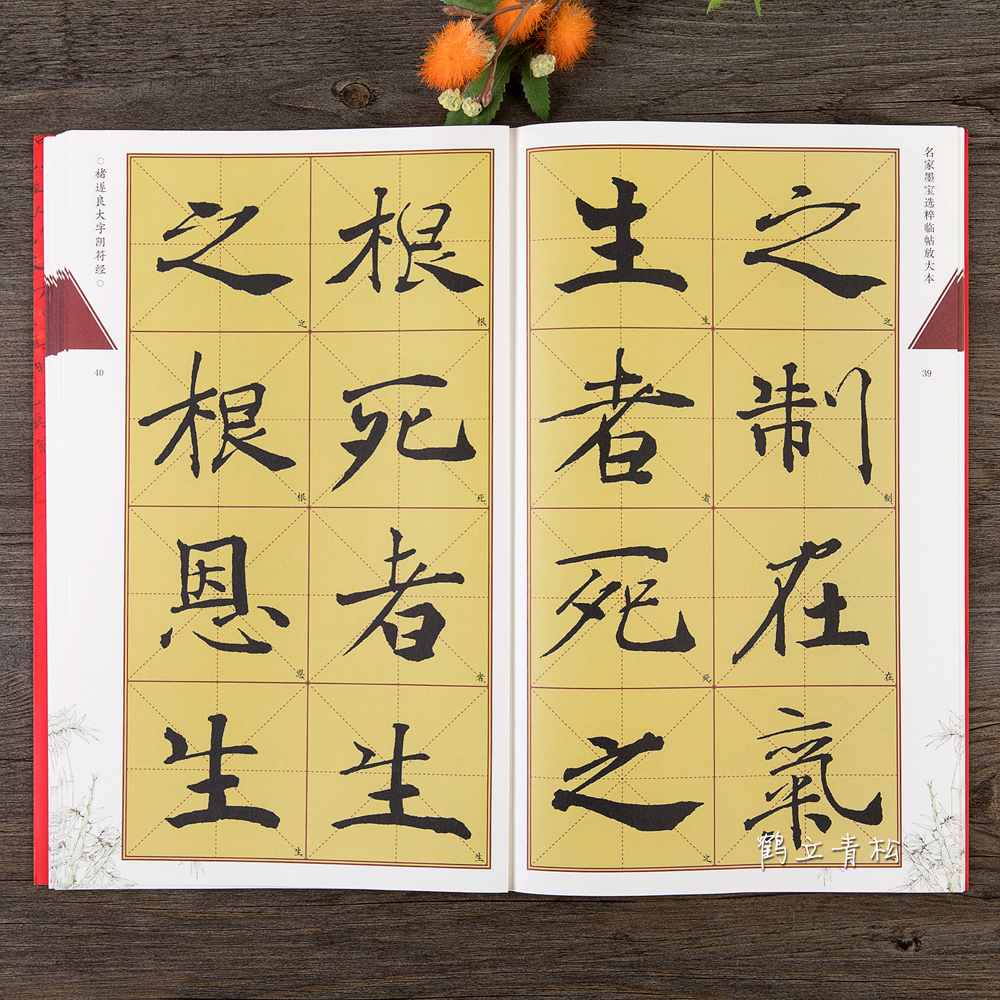 名家墨宝选粹临帖放大本
39
之制在氣
之制在
生者死之
生者死之
根死者生
根死者生
之根恩生
之根恩生
○褚遂良大字阴符经○
40
鹤立青松